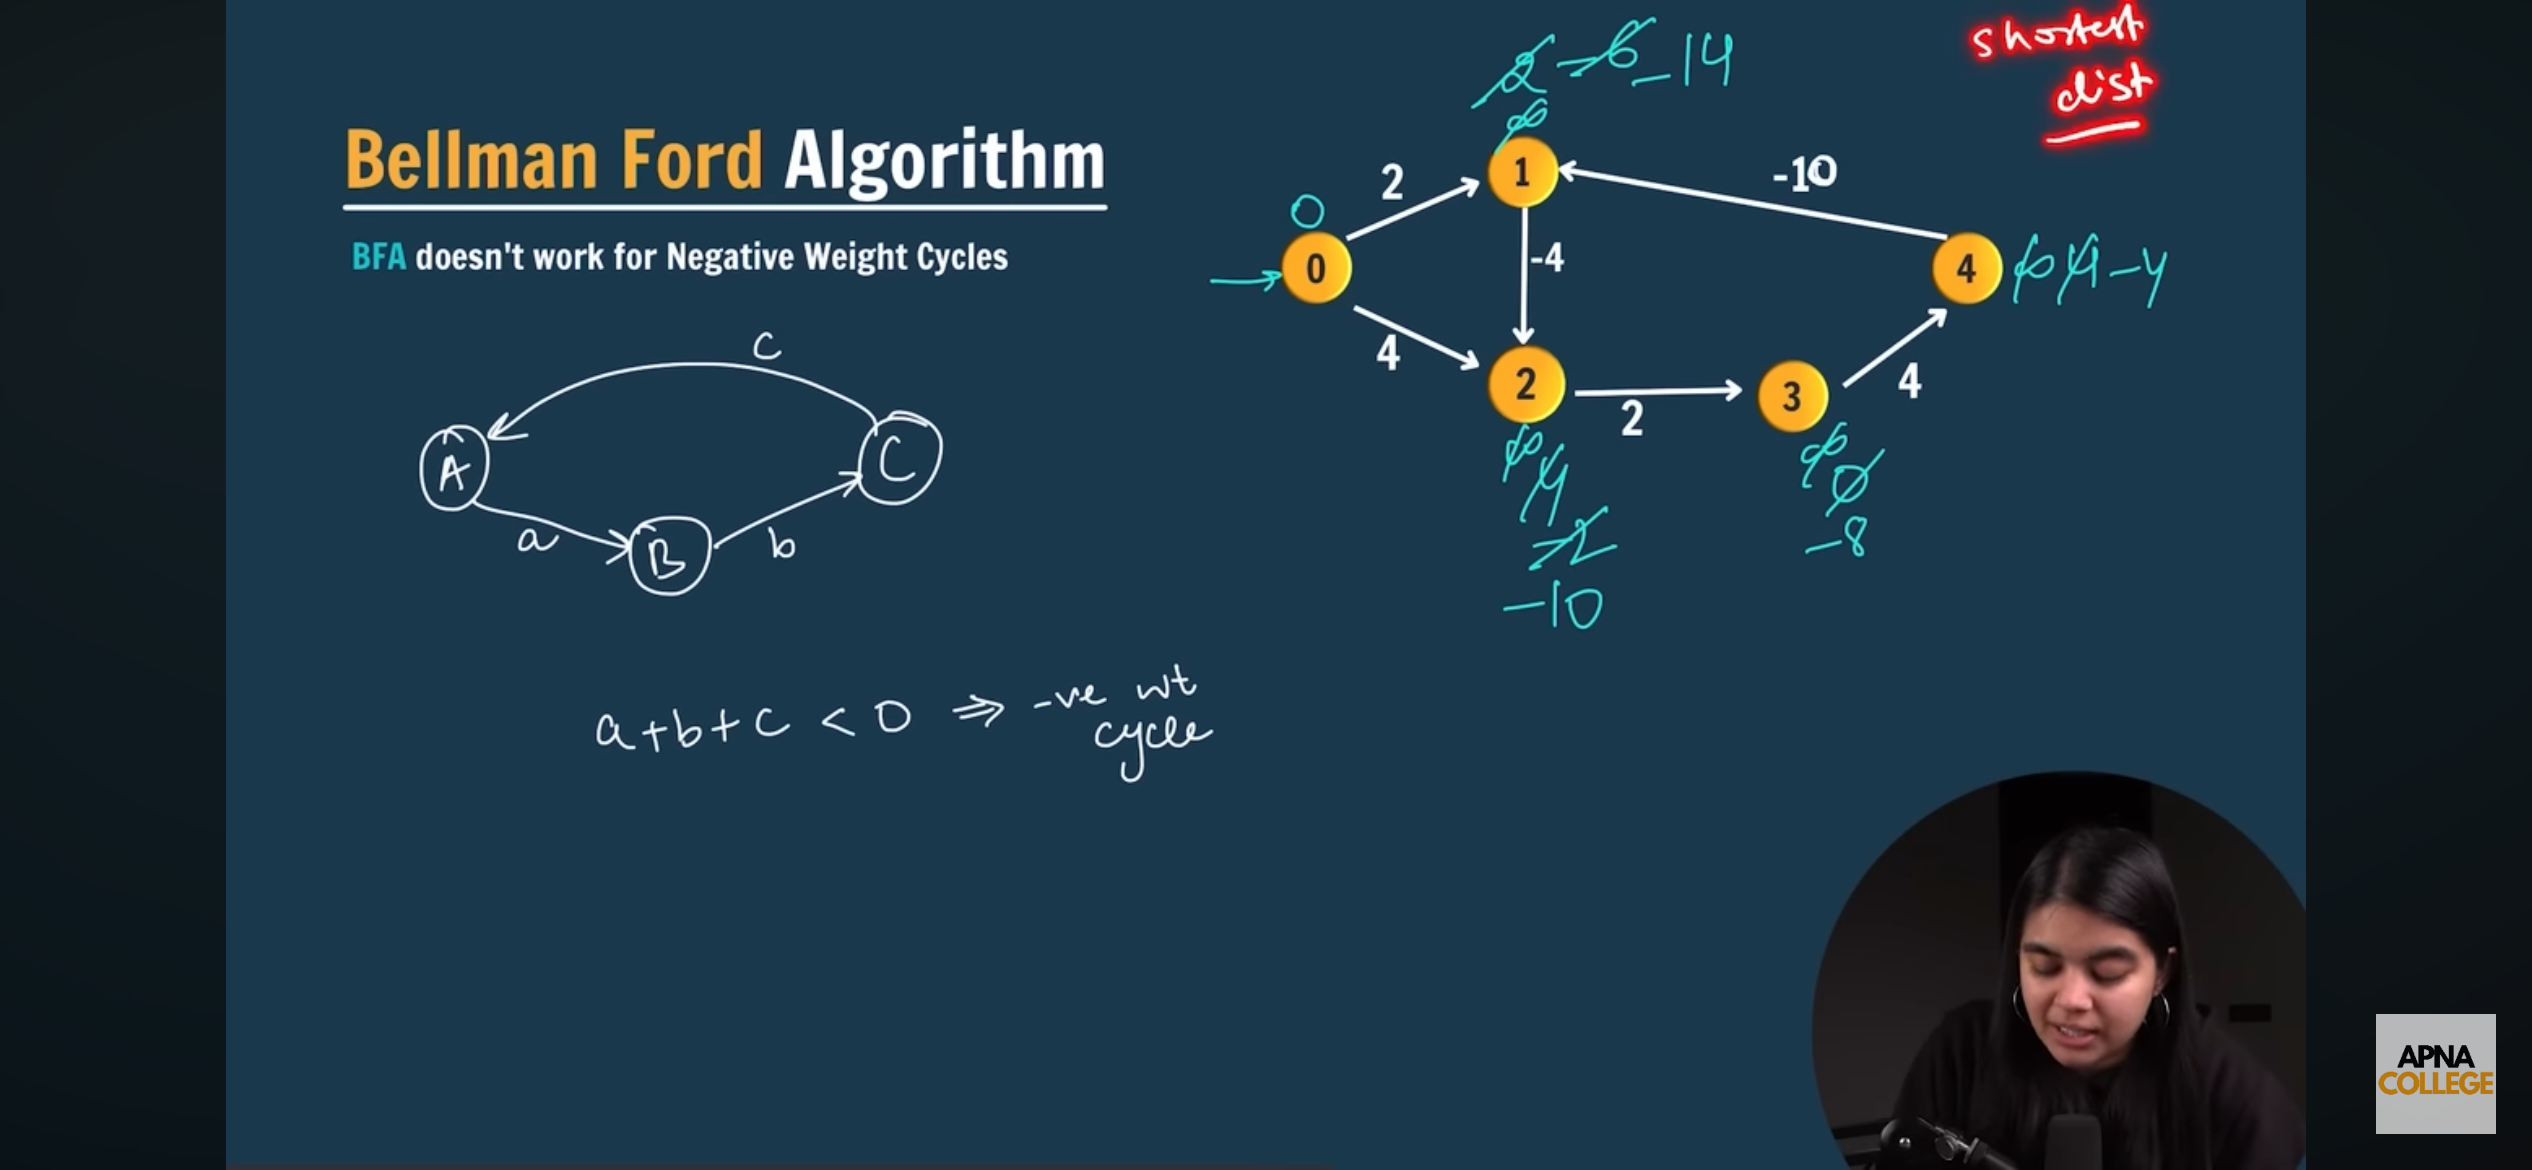 Bellman Ford Algorithm
BFA doesn't work for Negative Weight Cycles
c
A
C
a
B
b
a+b+c < 0 ⇒ -ve wt
cycle
shortest
dist
2 -6 -14
∞
1
2
-10
0
0
-4
4
∞ 4 -4
4
2
2
3
4
∞
4
-2
-10
∞
0
-8
APNA
COLLEGE